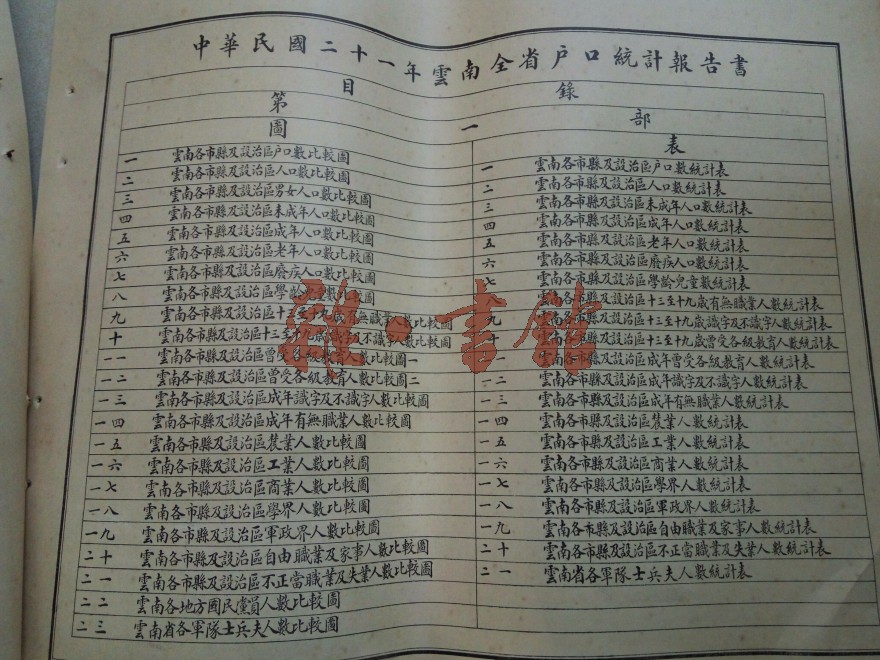 中華民國二十一年雲南全省戶口統計報告書
目錄
第一部
圖
一 雲南各市縣及設治區戶口數比較圖
二 雲南各市縣及設治區人口數比較圖
三 雲南各市縣及設治區男女人口數比較圖
四 雲南各市縣及設治區未成年人口數比較圖
五 雲南各市縣及設治區成年人口數比較圖
六 雲南各市縣及設治區老年人口數比較圖
七 雲南各市縣及設治區廢疾人口數比較圖
八 雲南各市縣及設治區學齡兒童數比較圖
九 雲南各市縣及設治區十三至十九歲有無職業人數比較圖
十 雲南各市縣及設治區十三至十九歲識字及不識字人數比較圖
一一 雲南各市縣及設治區曾受各級教育人數比較圖一
一二 雲南各市縣及設治區曾受各級教育人數比較圖二
一三 雲南各市縣及設治區成年識字及不識字人數比較圖
一四 雲南各市縣及設治區成年有無職業人數比較圖
一五 雲南各市縣及設治區農業人數比較圖
一六 雲南各市縣及設治區工業人數比較圖
一七 雲南各市縣及設治區商業人數比較圖
一八 雲南各市縣及設治區學界人數比較圖
一九 雲南各市縣及設治區軍政界人數比較圖
二十 雲南各市縣及設治區自由職業及家事人數比較圖
二一 雲南各市縣及設治區不正當職業及失業人數比較圖
二二 雲南各地方國民黨員人數比較圖
二三 雲南省各軍隊士兵夫人數比較圖
表
一 雲南各市縣及設治區戶口數統計表
二 雲南各市縣及設治區人口數統計表
三 雲南各市縣及設治區未成年人口數統計表
四 雲南各市縣及設治區成年人口數統計表
五 雲南各市縣及設治區老年人口數統計表
六 雲南各市縣及設治區廢疾人口數統計表
七 雲南各市縣及設治區學齡兒童數統計表
雲南各市縣及設治區十三至十九歲有無職業人數統計表
九 雲南各市縣及設治區十三至十九歲識字及不識字人數統計表
十 雲南各市縣及設治區十三至十九歲曾受各級教育人數統計表
一一 雲南各市縣及設治區成年曾受各級教育人數統計表
一二 雲南各市縣及設治區成年識字及不識字人數統計表
一三 雲南各市縣及設治區成年有無職業人數統計表
一四 雲南各市縣及設治區農業人數統計表
一五 雲南各市縣及設治區工業人數統計表
一六 雲南各市縣及設治區商業人數統計表
一七 雲南各市縣及設治區學界人數統計表
一八 雲南各市縣及設治區軍政界人數統計表
一九 雲南各市縣及設治區自由職業及家事人數統計表
二十 雲南各市縣及設治區不正當職業及失業人數統計表
二一 雲南省各軍隊士兵夫人數統計表